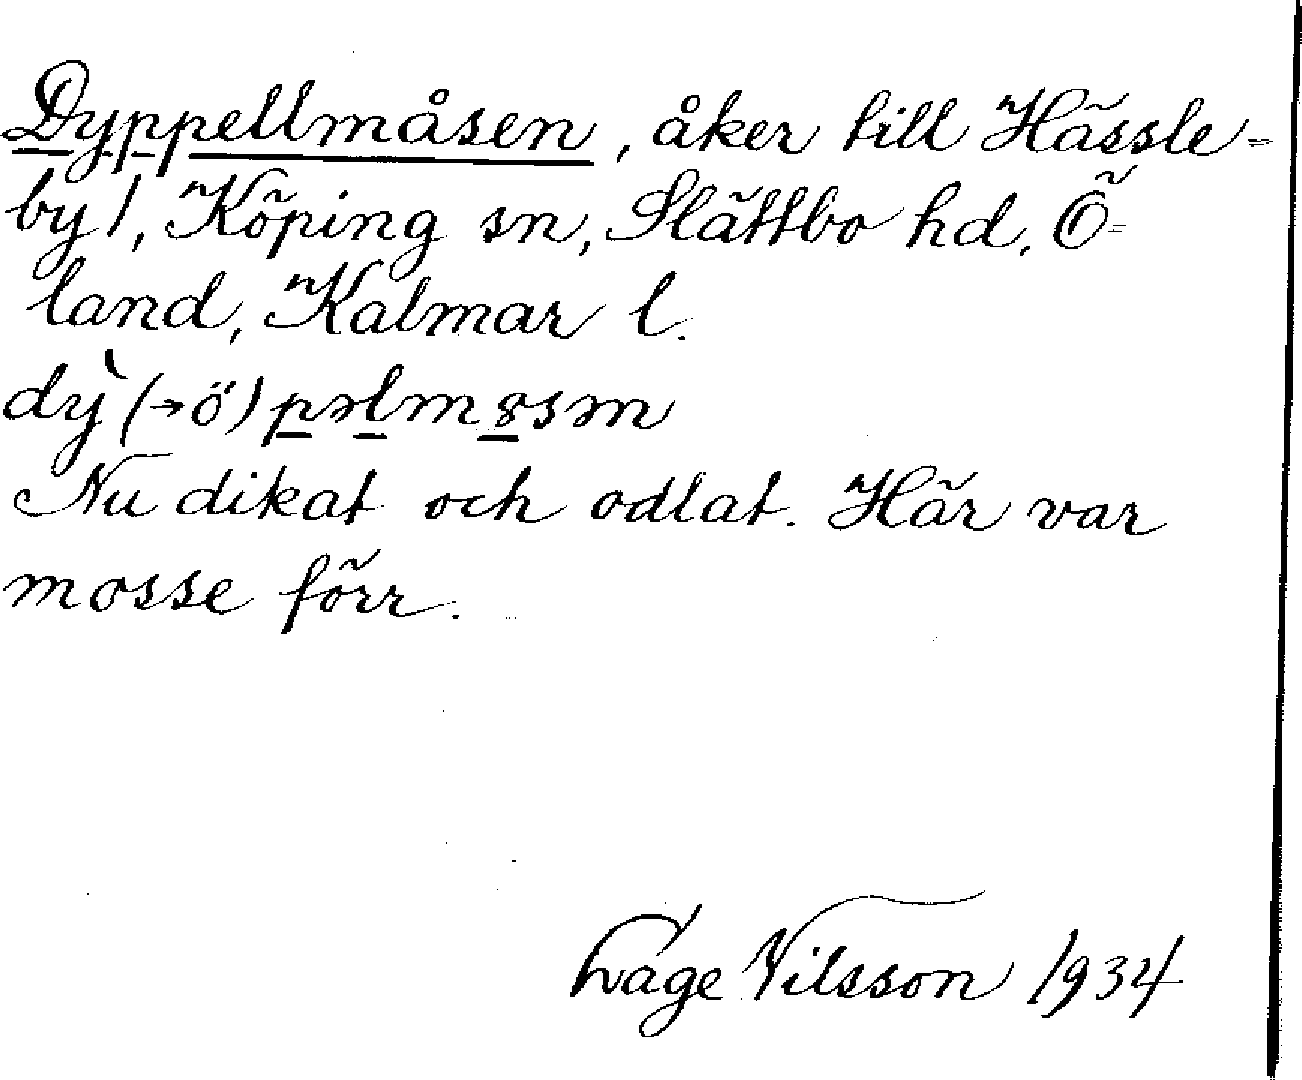 Dyppellmåsen, åker till Hässle=
by 1, Köping sn, Slättbo hd, Ö=
land, Kalmar l.
dỳ (→ö) pəlmɞsən
Nu dikat och odlat. Här var
mosse förr.
Låge Nilsson 1934